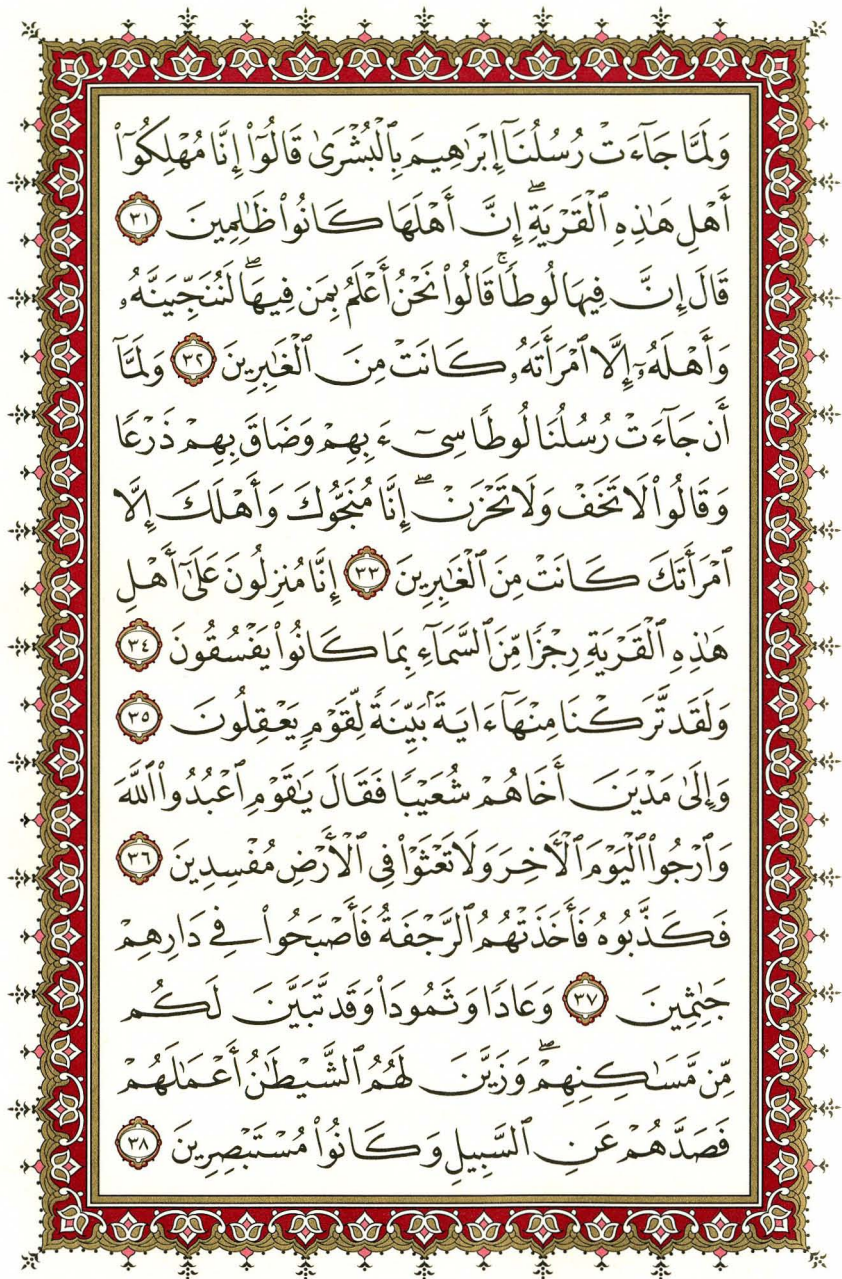 وَلَمَّا جَآءَتْ رُسُلُنَآ إِبْرَٰهِيمَ بِٱلْبُشْرَىٰ قَالُوٓا۟ إِنَّا مُهْلِكُوٓا۟
أَهْلِ هَـٰذِهِ ٱلْقَرْيَةِ ۖ إِنَّ أَهْلَهَا كَانُوا۟ ظَـٰلِمِينَ ٣١
قَالَ إِنَّ فِيهَا لُوطًا ۚ قَالُوا۟ نَحْنُ أَعْلَمُ بِمَن فِيهَا ۖ لَنُنَجِّيَنَّهُۥ
وَأَهْلَهُۥٓ إِلَّا ٱمْرَأَتَهُۥ كَانَتْ مِنَ ٱلْغَـٰبِرِينَ ٣٢ وَلَمَّآ
أَن جَآءَتْ رُسُلُنَا لُوطًا سِىٓءَ بِهِمْ وَضَاقَ بِهِمْ ذَرْعًا
وَقَالُوا۟ لَا تَخَفْ وَلَا تَحْزَنْ ۖ إِنَّا مُنَجُّوكَ وَأَهْلَكَ إِلَّا
ٱمْرَأَتَكَ كَانَتْ مِنَ ٱلْغَـٰبِرِينَ ٣٣ إِنَّا مُنزِلُونَ عَلَىٰٓ أَهْلِ
هَـٰذِهِ ٱلْقَرْيَةِ رِجْزًا مِّنَ ٱلسَّمَآءِ بِمَا كَانُوا۟ يَفْسُقُونَ ٣٤
وَلَقَد تَّرَكْنَا مِنْهَآ ءَايَةًۢ بَيِّنَةً لِّقَوْمٍ يَعْقِلُونَ ٣٥
وَإِلَىٰ مَدْيَنَ أَخَاهُمْ شُعَيْبًا فَقَالَ يَـٰقَوْمِ ٱعْبُدُوا۟ ٱللَّهَ
وَٱرْجُوا۟ ٱلْيَوْمَ ٱلْـَٔاخِرَ وَلَا تَعْثَوْا۟ فِى ٱلْأَرْضِ مُفْسِدِينَ ٣٦
فَكَذَّبُوهُ فَأَخَذَتْهُمُ ٱلرَّجْفَةُ فَأَصْبَحُوا۟ فِى دَارِهِمْ
جَـٰثِمِينَ ٣٧ وَعَادًا وَثَمُودَا۟ وَقَد تَّبَيَّنَ لَكُم
مِّن مَّسَـٰكِنِهِمْ ۖ وَزَيَّنَ لَهُمُ ٱلشَّيْطَـٰنُ أَعْمَـٰلَهُمْ
فَصَدَّهُمْ عَنِ ٱلسَّبِيلِ وَكَانُوا۟ مُسْتَبْصِرِينَ ٣٨